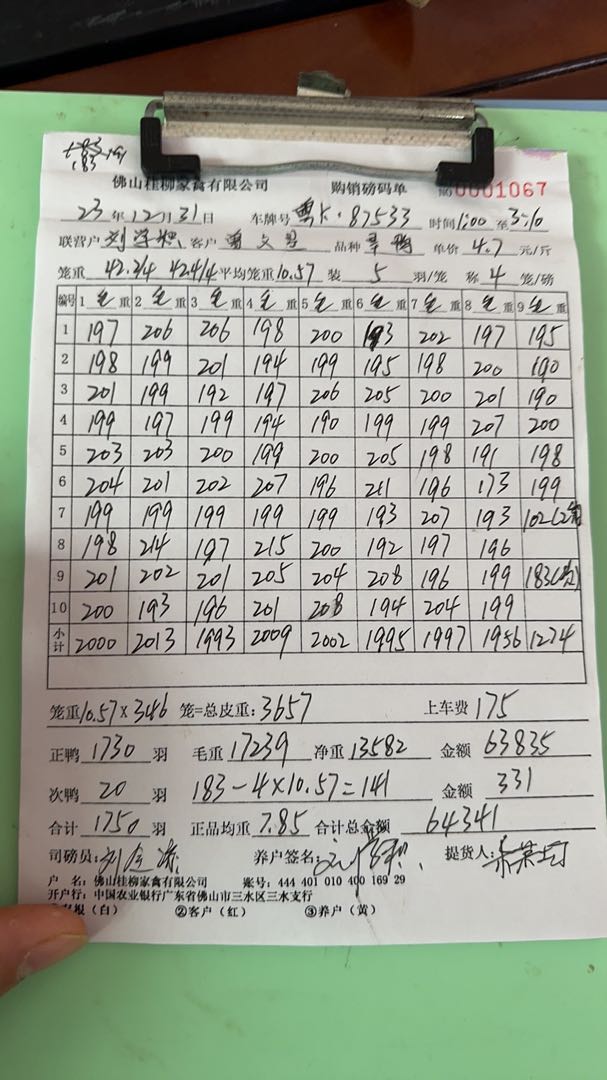 183 191
佛山桂柳家禽有限公司 购销磅码单 0001067
23年12月31日 车牌号 粤K·87533 时间1:00至3:10
联营户 客户 品种 单价 4.7 元/斤
笼重 42.2/4 42.4/4 平均笼重10.57 装 5 羽/笼 称 4 笼/磅
编号 1 毛重 2 毛重 3 毛重 4 毛重 5 毛重 6 毛重 7 毛重 8 毛重 9 毛重
1 197 206 206 198 200 193 202 197 195
2 198 199 201 194 199 195 198 200 190
3 201 199 192 197 206 205 200 201 190
4 199 197 199 194 190 199 199 207 200
5 203 203 200 199 200 205 198 191 198
6 204 201 202 207 196 211 196 173 199
7 199 199 199 199 199 193 207 193 102(2笼
8 198 214 197 215 200 192 197 196
9 201 202 201 205 204 208 196 199 183(次)
10 200 193 196 201 208 194 204 199
小计 2000 2013 1993 2009 2002 1995 1997 1956 1274
笼重10.57×346 笼=总皮重:3657 上车费 175
正鸭 1730 羽 毛重 17239 净重 13582 金额 63835
次鸭 20 羽 183-4×10.57=141 金额 331
合计 1750 羽 正品均重 7.85 合计总金额 64341
司磅员: 养户签名: 提货人:
户 名:佛山桂柳家禽有限公司 账号:444 401 010 400 169 29
开户行:中国农业银行广东省佛山市三水区三水支行
根(白) ②客户(红) ③养户(黄)